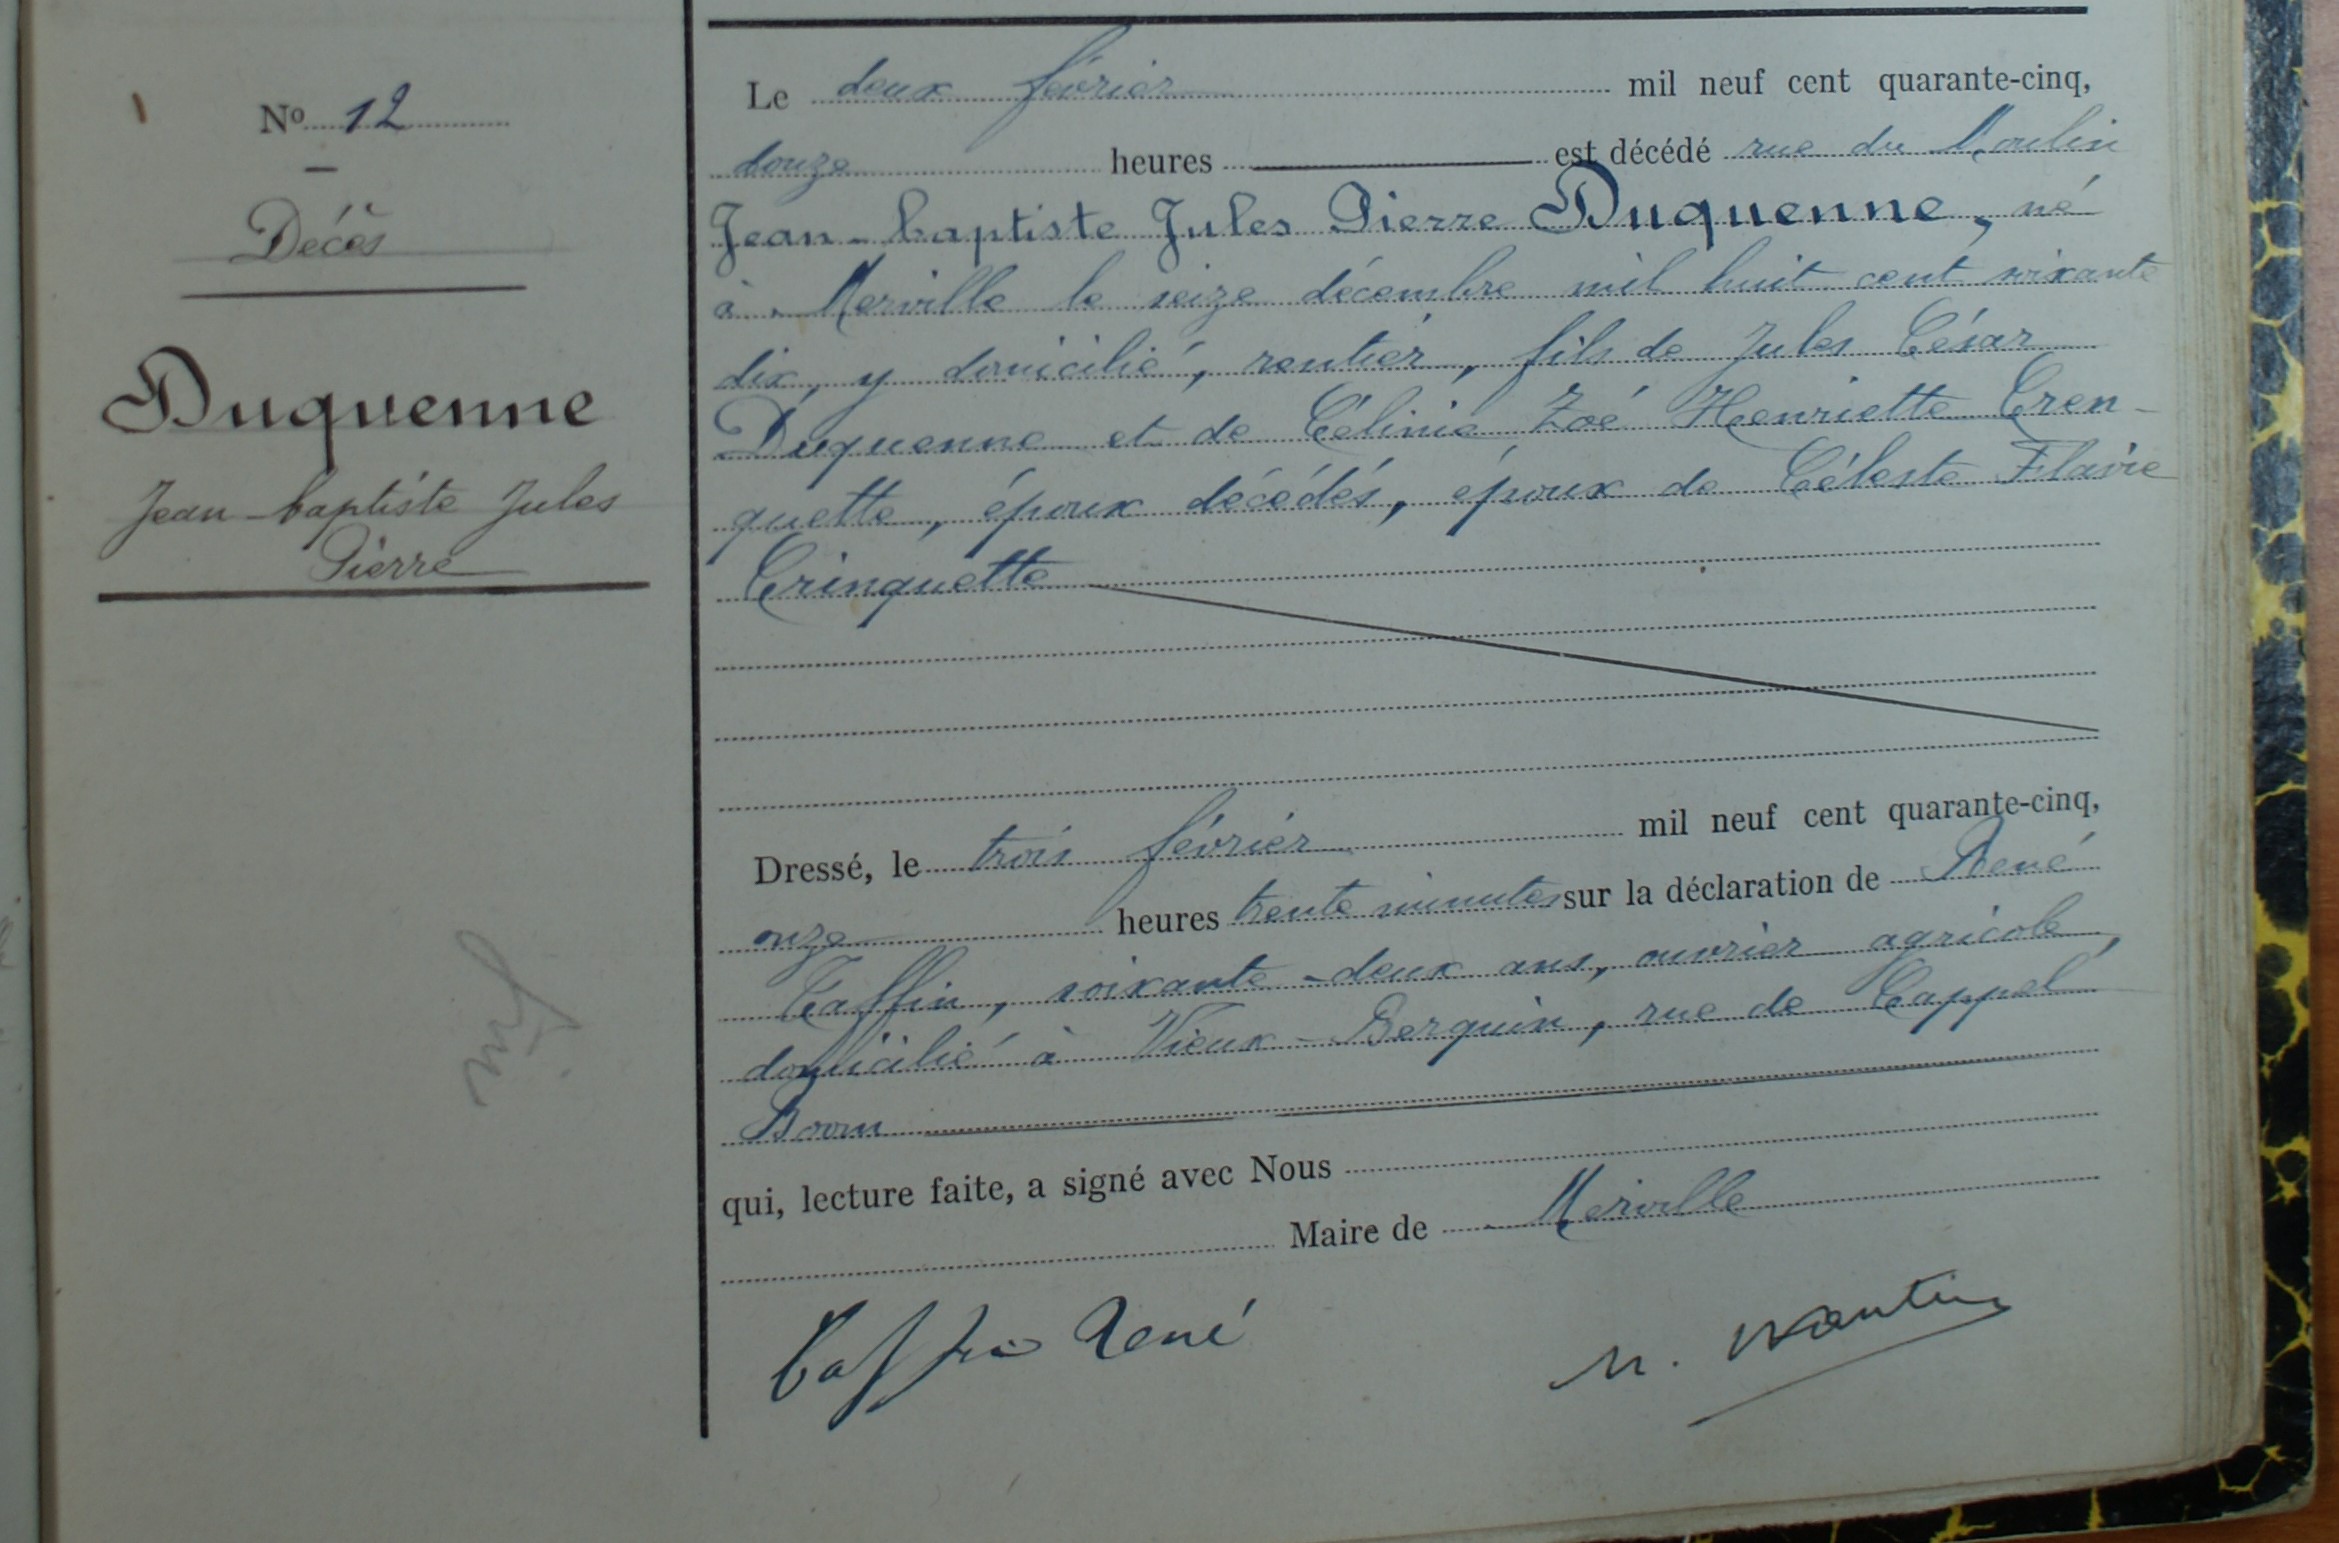 N° 12
Décès
Duquenne
Jean-baptiste Jules
Pierre
Le deux février mil neuf cent quarante-cinq,
douze heures est décédé rue du Moulin
Jean-baptiste Jules Pierre Duquenne, né
à Merville le seize décembre mil huit cent soixante
dix, y domicilié, rentier, fils de Jules César
Duquenne et de Célinie Zoé Henriette Cren-
quette, époux décédés, époux de Céleste Flavie
Crinquette
Dressé, le trois février mil neuf cent quarante-cinq,
onze heures trente minutes sur la déclaration de René
Taffin, soixante-deux ans, ouvrier agricole,
domicilié à Vieux-Berquin, rue de Cappel
Boom
qui, lecture faite, a signé avec Nous
Maire de Merville
Taffin René